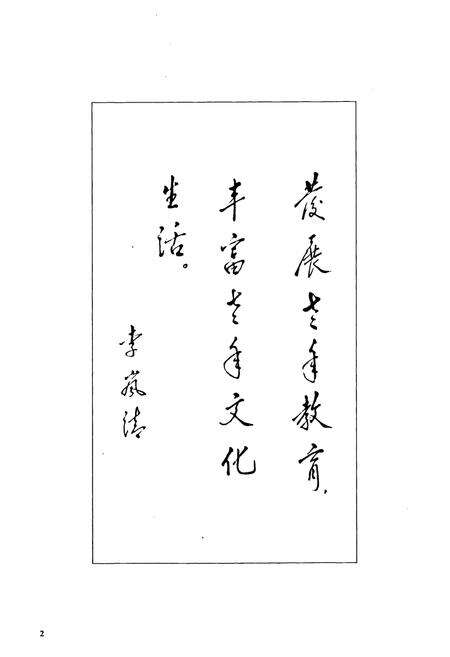 发展老年教育，
丰富老年文化
生活。
李岚清
2